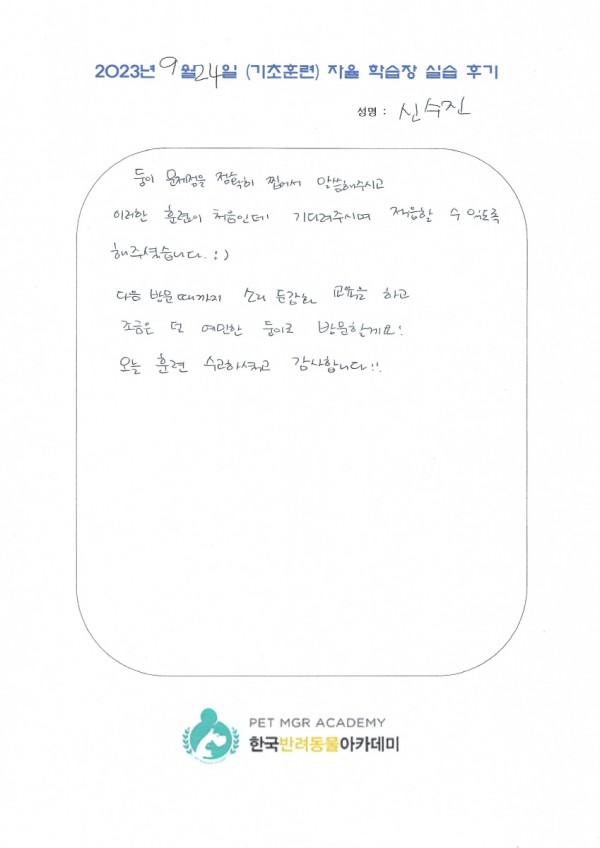 2023년 9월 24일 (기초훈련) 자율 학습장 실습 후기
성명 : 신수진
둥이 문제점을 정확히 찝어서 말씀해주시고
이러한 훈련이 처음인데 기다려주시며 적응할 수 있도록
해주셨습니다. :)
다음 방문 때까지 소리 둔감화 교육을 하고
조금은 덜 예민한 둥이로 방문할게요!
오늘 훈련 수고하셨고 감사합니다!!
PET MGR ACADEMY
한국반려동물아카데미